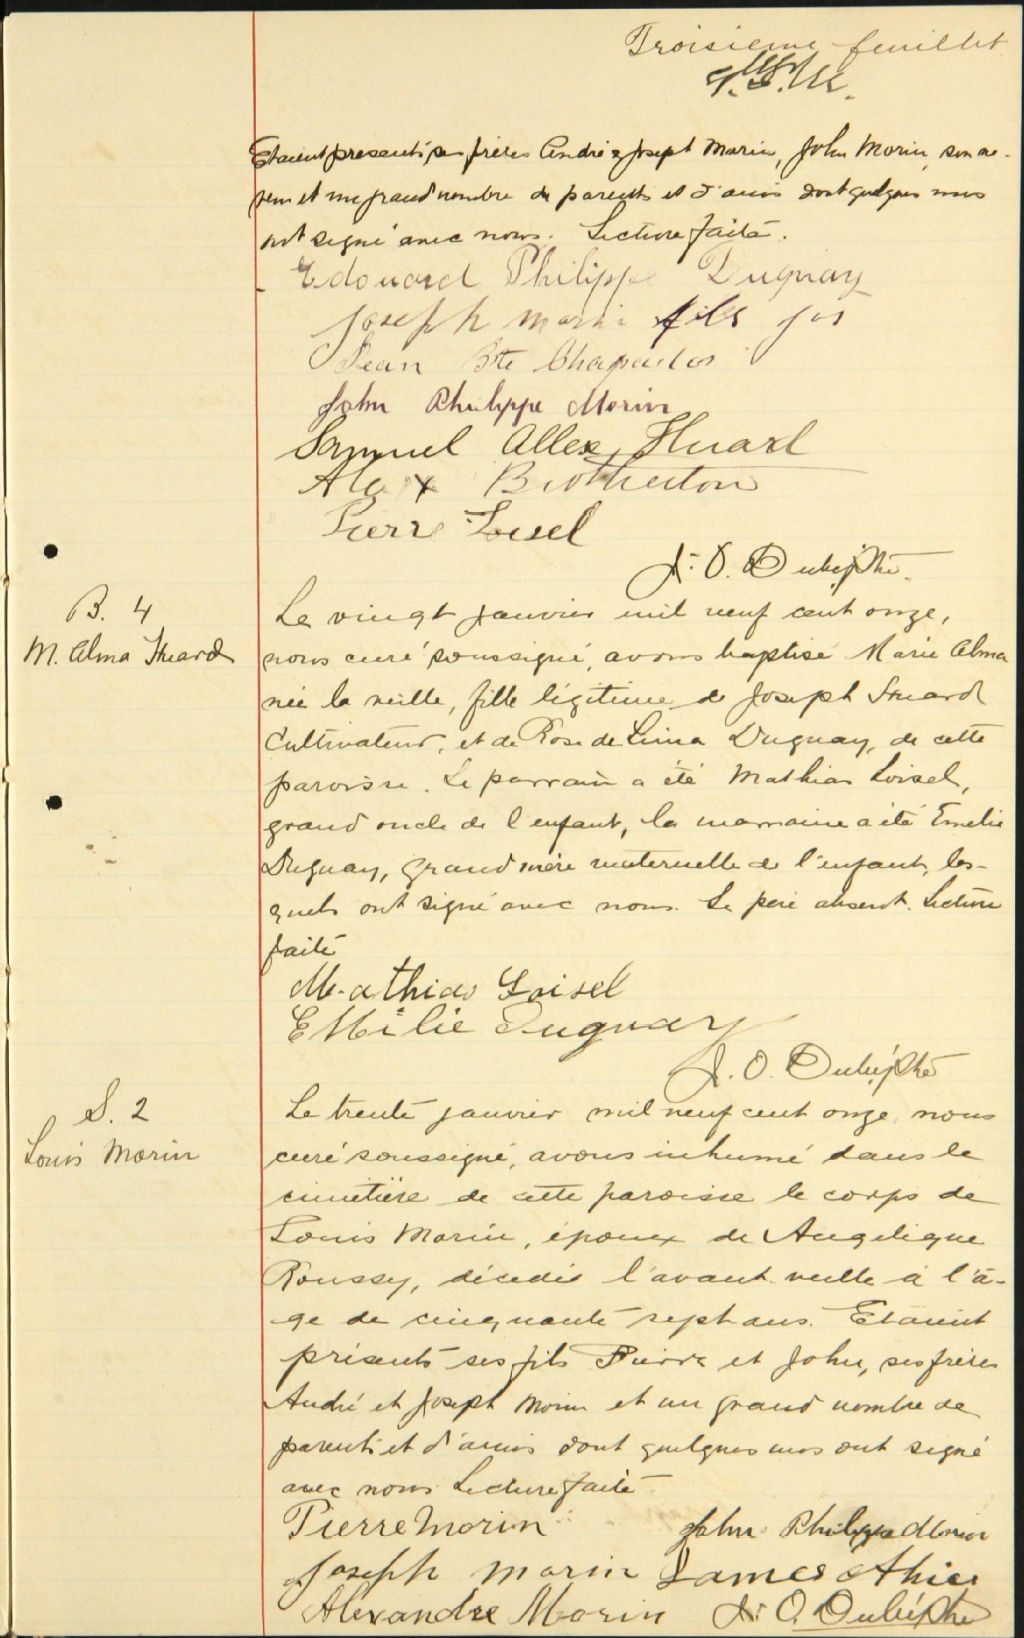 Troisieme feuillet
Etaient presents ses frères André & Joseph Morin, John Morin, son ne-
veu et un grand nombre de parents et d'amis dont quelques uns
ont signé avec nous. Lecture faite.
Edouard Philippe Duguay
Joseph Morin fils Jos
Jean Bte Chapados
John Philippe Morin
Samuel Allex Huard
Alex Brotherton
Pierre Loisel
J. O. Dubéphé.
B. 4
M. Alma Huard
Le vingt janvier mil neuf cent onze,
nous curé soussigné, avons baptisé Marie Alma
née la veille, fille légitime de Joseph Huard
Cultivateur, et de Rose de Lima Duguay, de cette
paroisse. Le parrain a été Mathias Loisel,
grand oncle de l'enfant, la marraine a été Emelie
Duguay, grand'mère maternelle de l'enfant, les-
quels ont signé avec nous. Le père absent. Lecture
faite
Mathias Loisel
Emilie Duguay
J. O. Dubéphé
S. 2
Louis Morin
Le trente janvier mil neuf cent onze, nous
curé soussigné, avons inhumé dans le
cimetière de cette paroisse le corps de
Louis Morin, époux de Angelique
Roussy, décédé l'avant veille à l'â-
ge de cinquante sept ans. Etaient
présents ses fils Pierre et John, ses frères
André et Joseph Morin et un grand nombre de
parents et d'amis dont quelques uns ont signé
avec nous Lecture faite
Pierre Morin John Philippe Morin
Joseph Morin James
Alexandre Morin J. O. Dubéphé